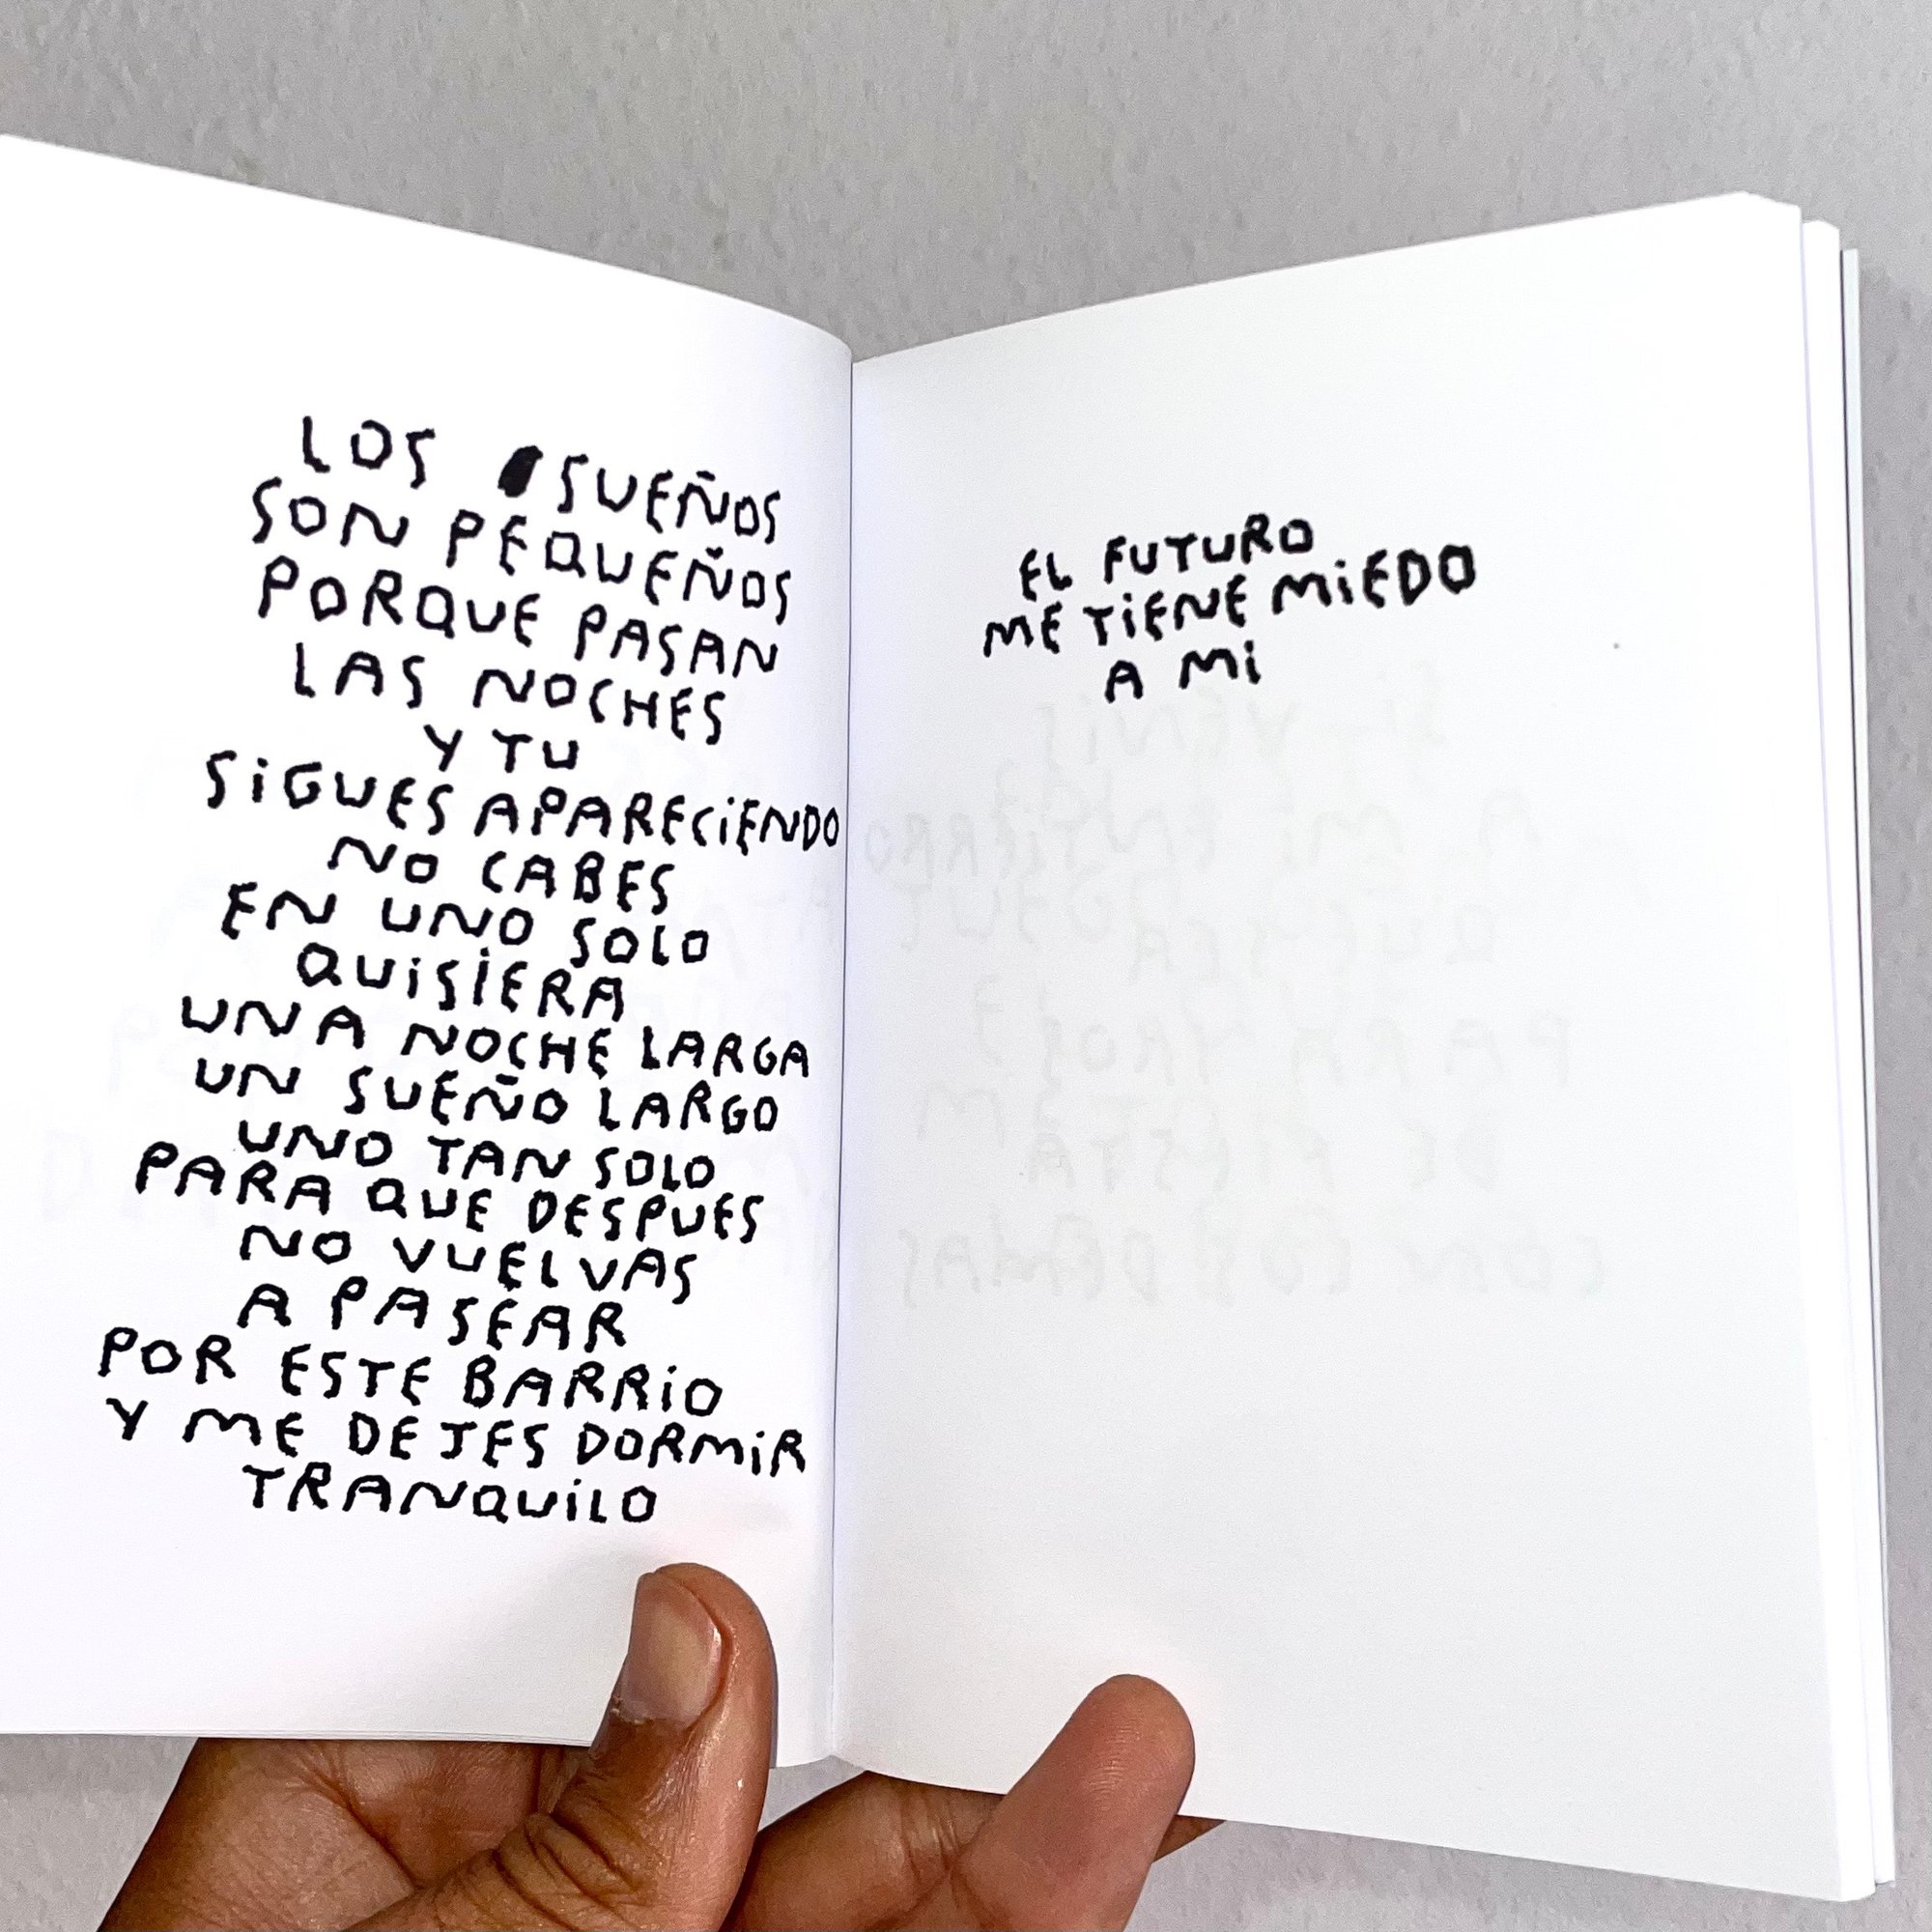 LOS SUEÑOS
SON PEQUEÑOS
PORQUE PASAN
LAS NOCHES
Y TU
SiGUES APARECiENDO
NO CABES
EN UNO SOLO
QUiSiERA
UNA NOCHE LARGA
UN SUEÑO LARGO
UNO TAN SOLO
PARA QUE DESPUES
NO VUELVAS
A PASEAR
POR ESTE BARRiO
Y ME DEJES DORMiR
TRANQUiLO
EL FUTURO
ME TiENE MiEDO
A Mi